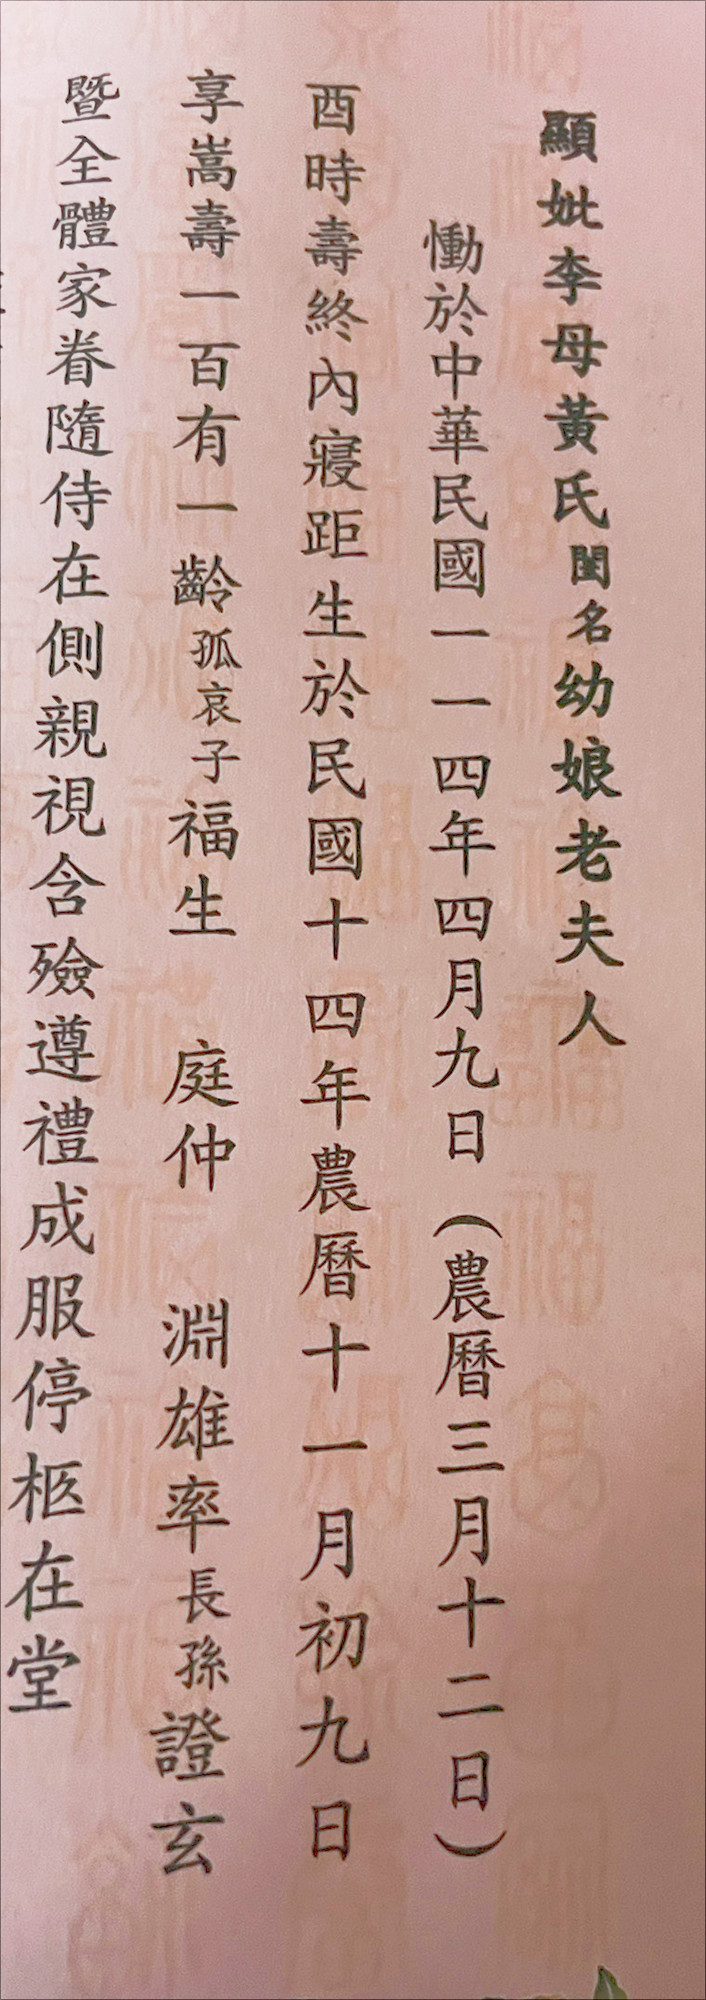 顯妣李母黃氏閨名幼娘老夫人
慟於中華民國一一四年四月九日（農曆三月十二日）
酉時壽終內寢距生於民國十四年農曆十一月初九日
享嵩壽一百有一齡孤哀子福生　庭仲　淵雄率長孫證玄
暨全體家眷隨侍在側親視含殮遵禮成服停柩在堂